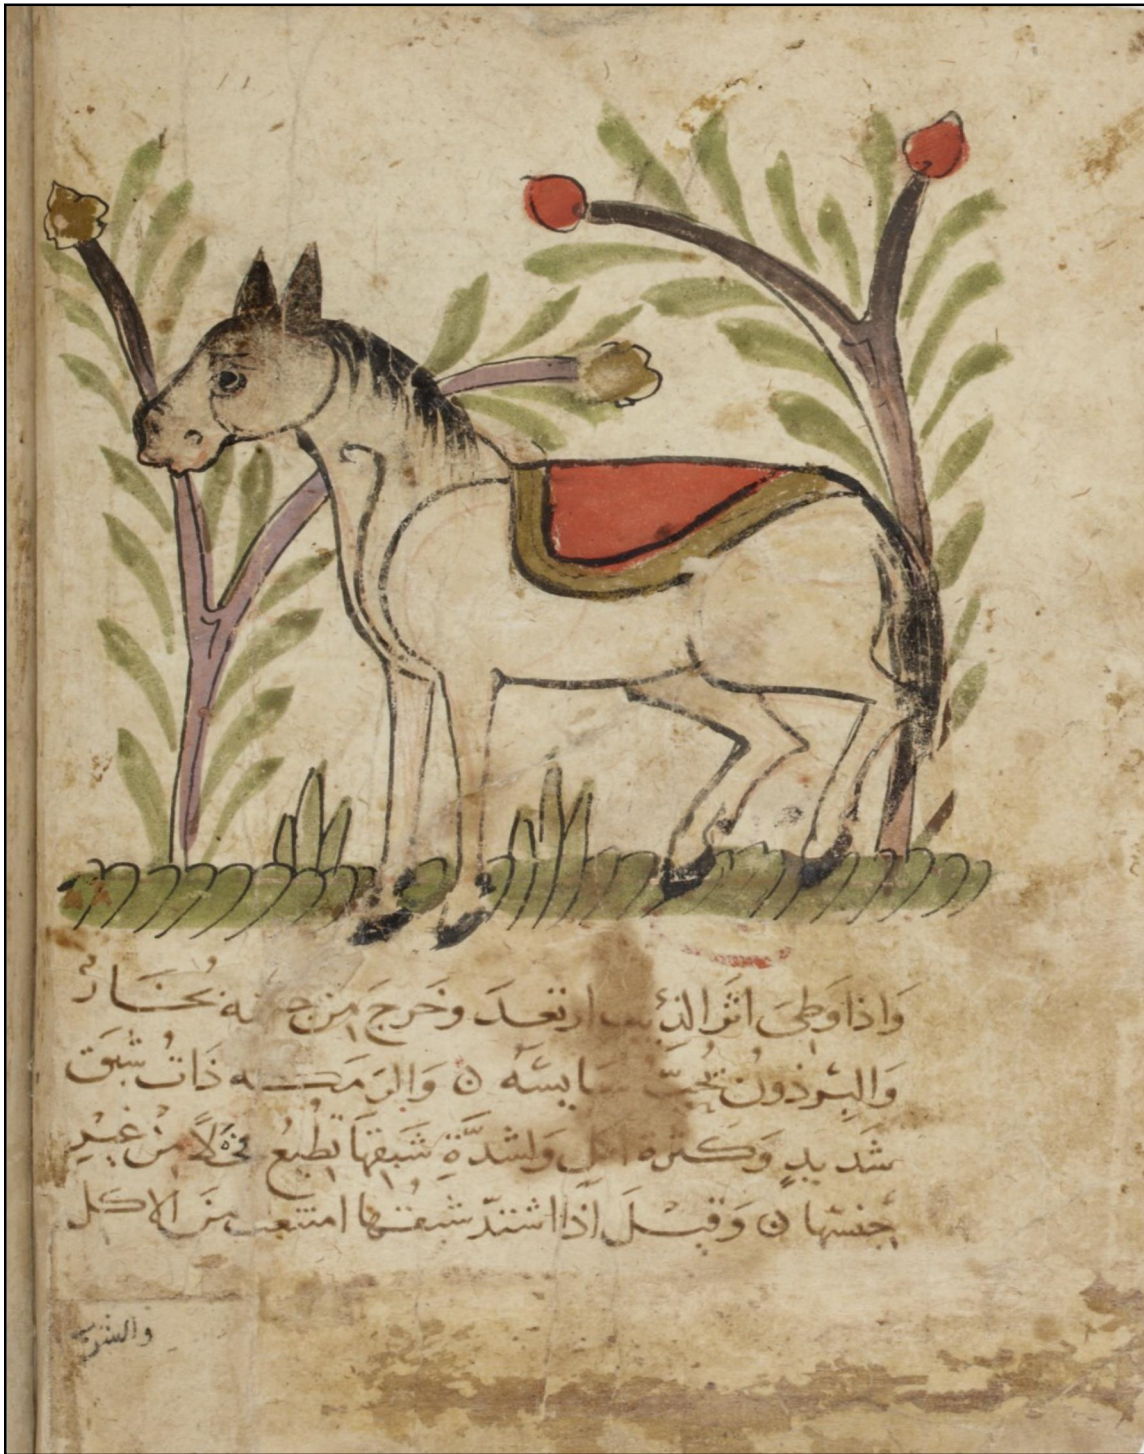 وَاِذَا وَطِىَ اثَر الذِئب ارتعدَ وخَرجَ مِن بُخَارٌ
وَالبِرذونُ تُحِبّ سَايسَهُ ن وَالرَمَكـه ذَاتُ شبَق
شَديدٍ وَكثرة وَلشدَّةِ شبَقهَا تُطيعُ فَحْلاً مِنْ غَيْرِ
جِنسِهَا ن وَقيْلَ اِذَا اشتدّ شبقُهَا امتنعت مِنَ الاكل
والشرب